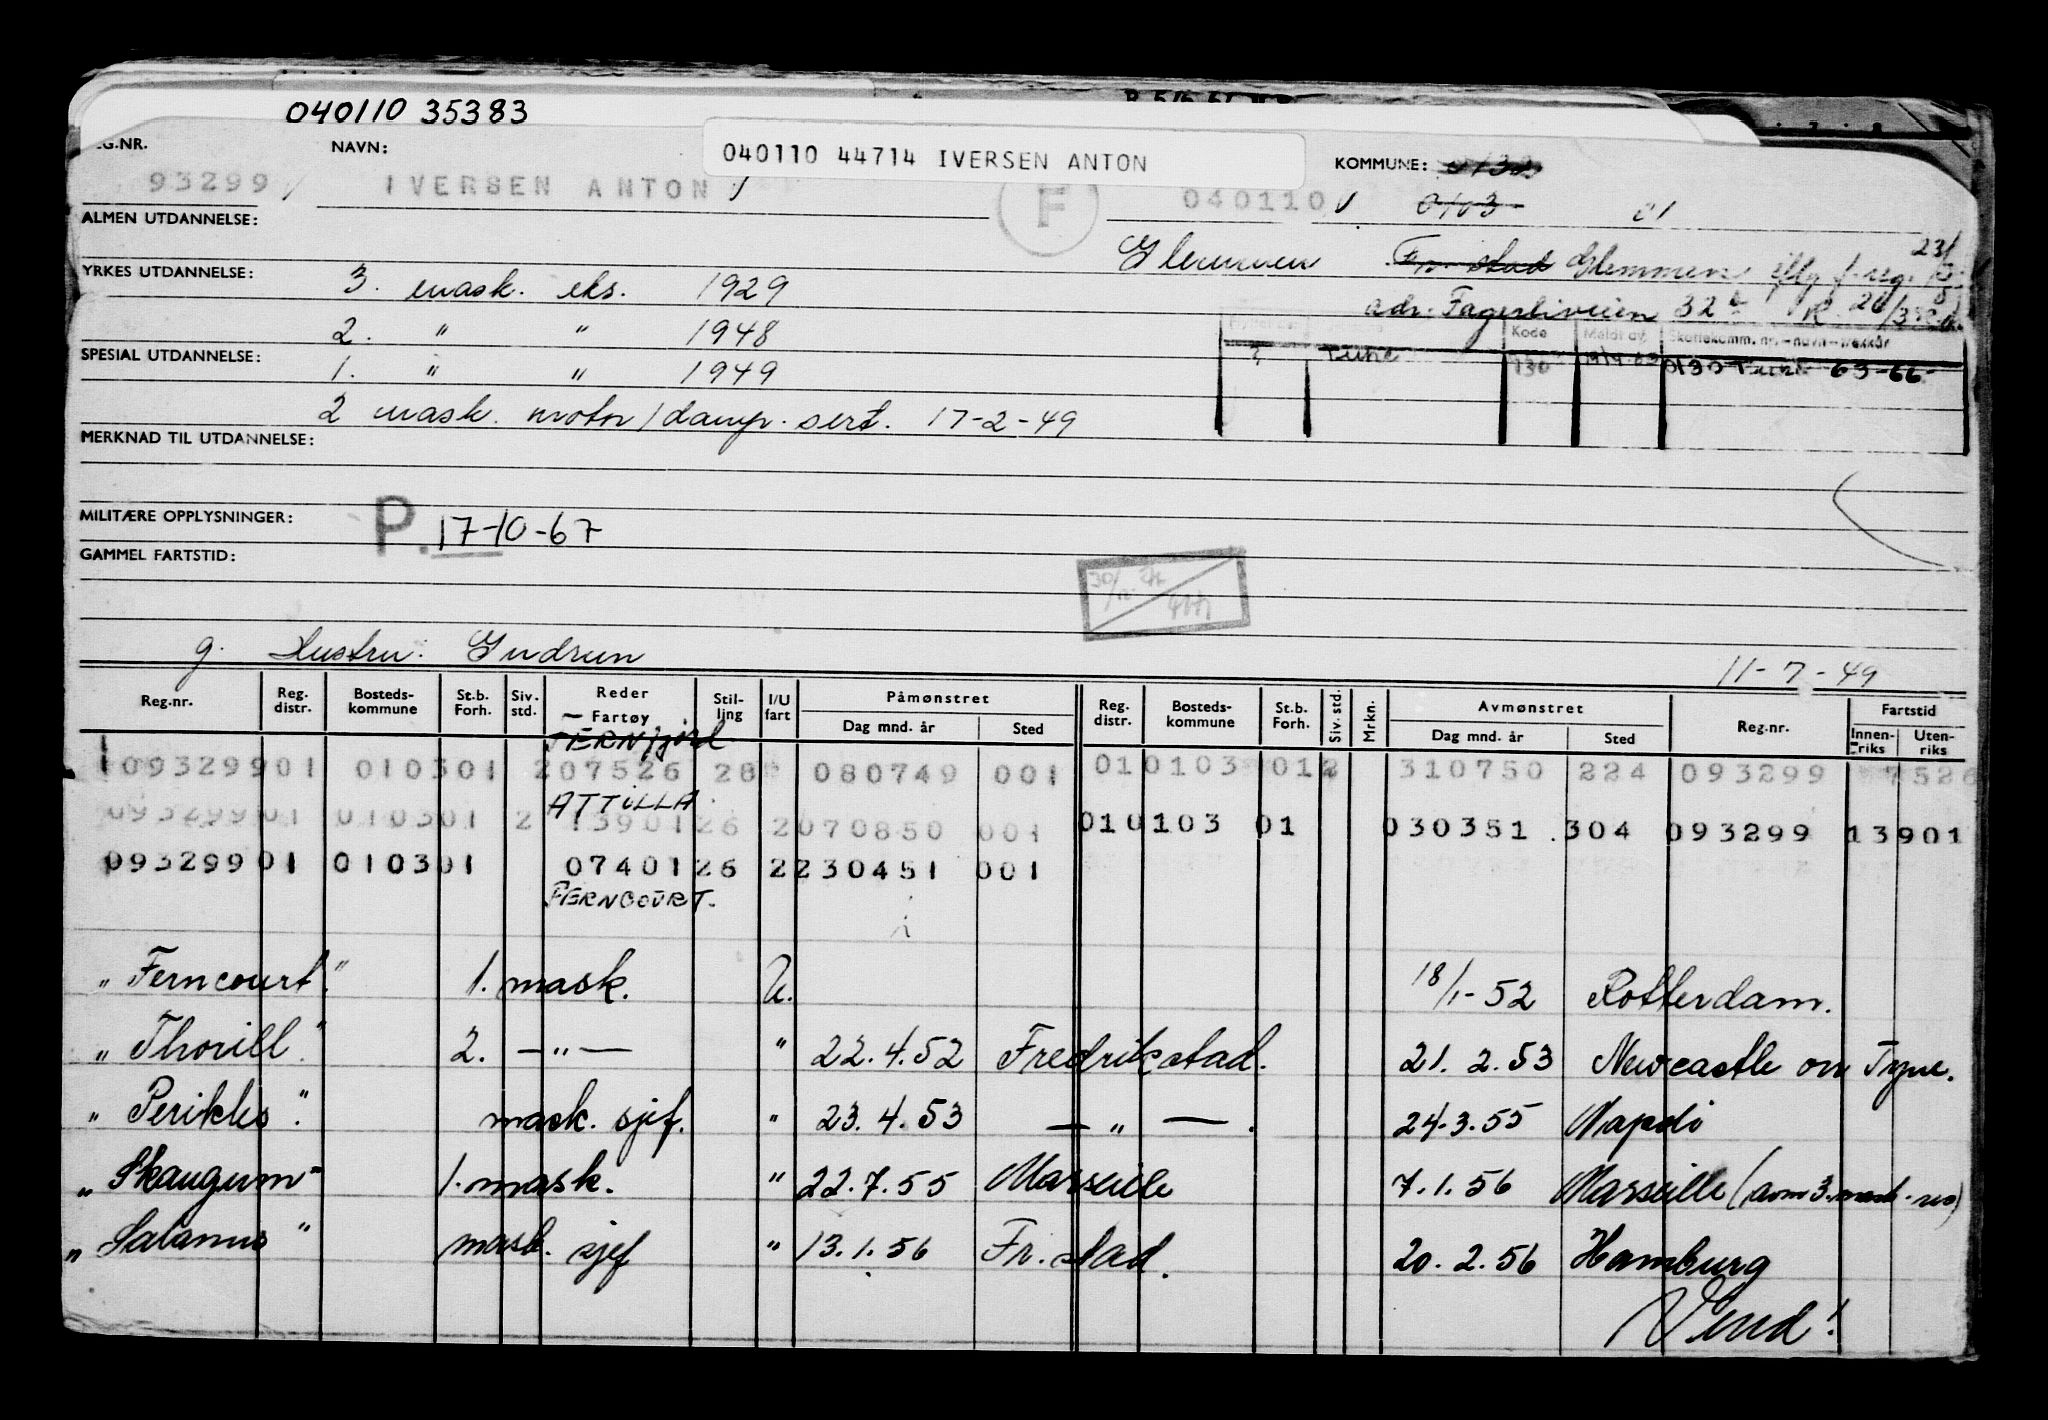 040110 35383
040110 44714 IVERSEN ANTON
G.NR.
NAVN:
KOMMUNE:
93299 IVERSEN ANTON F 040110 0103 01
ALMEN UTDANNELSE:
Glemmen Fr. stad Glemmen iflg f.reg.
YRKES UTDANNELSE: 3. mask. eks. 1929
adr. Fagerliveien 32
2. " " 1948
Kode Meldt av Skattekomm. nr.-navn-trekkår
SPESIAL UTDANNELSE: 1. " " 1949
Tune 130 0130 Tune 63-66
2 mask. motor/damp. sert. 17-2-49
MERKNAD TIL UTDANNELSE:
MILITÆRE OPPLYSNINGER: P. 17-10-67
GAMMEL FARTSTID:
g. Hustru: Gudrun
11-7-49
Reg.nr. Reg. distr. Bosteds-kommune St.b. Forh. Siv. std. Reder — Fartøy Stil-ling I/U fart Påmønstret Dag mnd. år Sted Reg. distr. Bosteds-kommune St.b. Forh. Siv. std. Mrkn. Avmønstret Dag mnd. år Sted Reg.nr. Fartstid Innen-riks Uten-riks
FERNfjord
09329901 010301 207526 28 080749 001 010103 012 310750 224 093299 7526
ATTILLA
09329901 010301 2 1390126 2070850 001 010103 01 030351 304 093299 13901
09329901 010301 0740126 2230451 001
FERNCOURT.
"Ferncourt". 1. mask. U. 18/1-52 Rotterdam.
"Thorill". 2. —"— " 22.4.52 Fredrikstad. 21.2.53 Newcastle on Tyne.
"Perikles". mask. sjef. " 23.4.53 —"—. 24.3.55 Napoli
"Skaugum" 1. mask. " 22.7.55 Marseille 7.1.56 Marseille (avm 3. mask.
"Salamis" mask. sjef " 13.1.56 Fr.stad. 20.2.56 Hamburg
Vend!